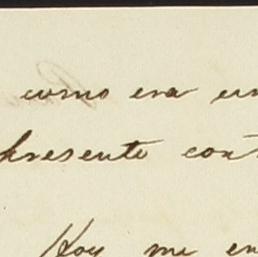 como era un
presente con
Hoy me en